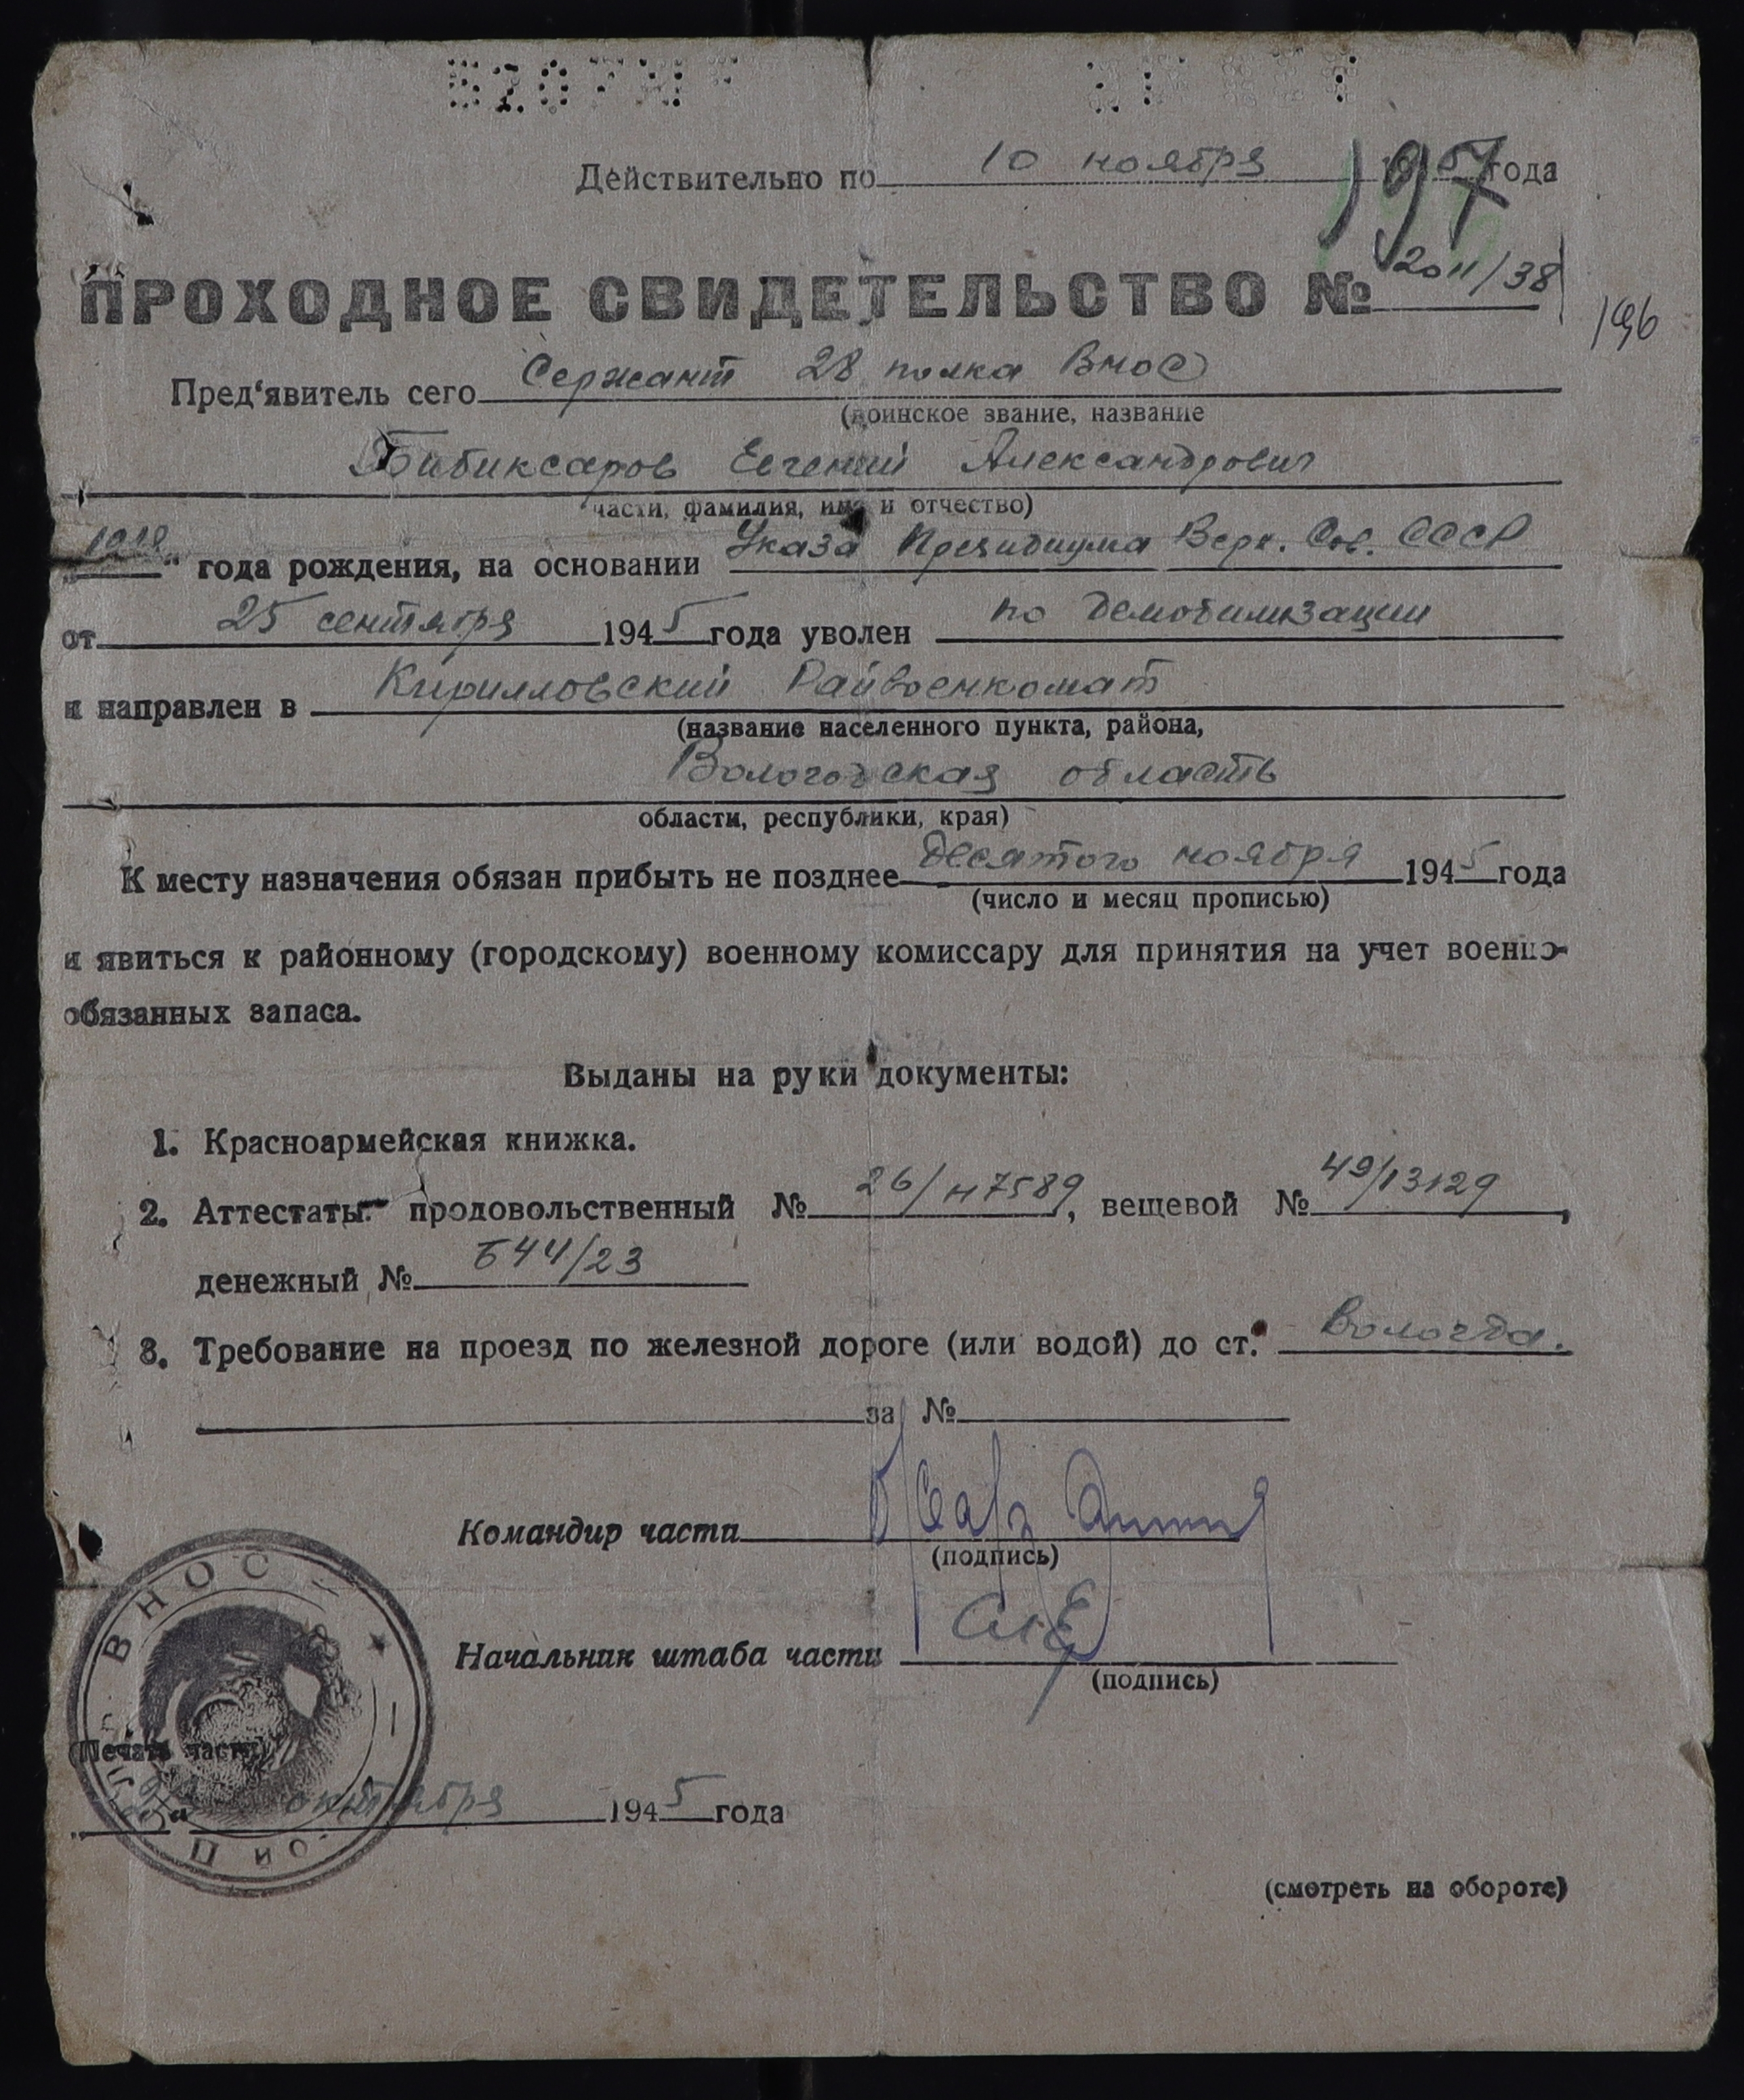 Действительно по 10 ноября 1945 года
197
ПРОХОДНОЕ СВИДЕТЕЛЬСТВО № 2011/38
196
Пред'явитель сего Сержант 28 полка ВНОС
(воинское звание, название
Бибиксаров Евгений Александрович
части, фамилия, имя и отчество)
"1918" года рождения, на основании Указа Президиума Верх. Сов. СССР
от 25 сентября 1945 года уволен по демобилизации
и направлен в Кирилловский Райвоенкомат
(название населенного пункта, района,
Вологодская область
области, республики, края)
К месту назначения обязан прибыть не позднее Десятого ноября 1945 года
(число и месяц прописью)
и явиться к районному (городскому) военному комиссару для принятия на учет военно-
обязанных запаса.
Выданы на руки документы:
1. Красноармейская книжка.
2. Аттестаты: продовольственный № 26/н7589, вещевой № 49/13129,
денежный № Б44/23
3. Требование на проезд по железной дороге (или водой) до ст. Вологда.
за №
Командир части
(подпись)
Начальник штаба части
(подпись)
ВНОС
(Печать части)
октября 1945 года
(смотреть на обороте)